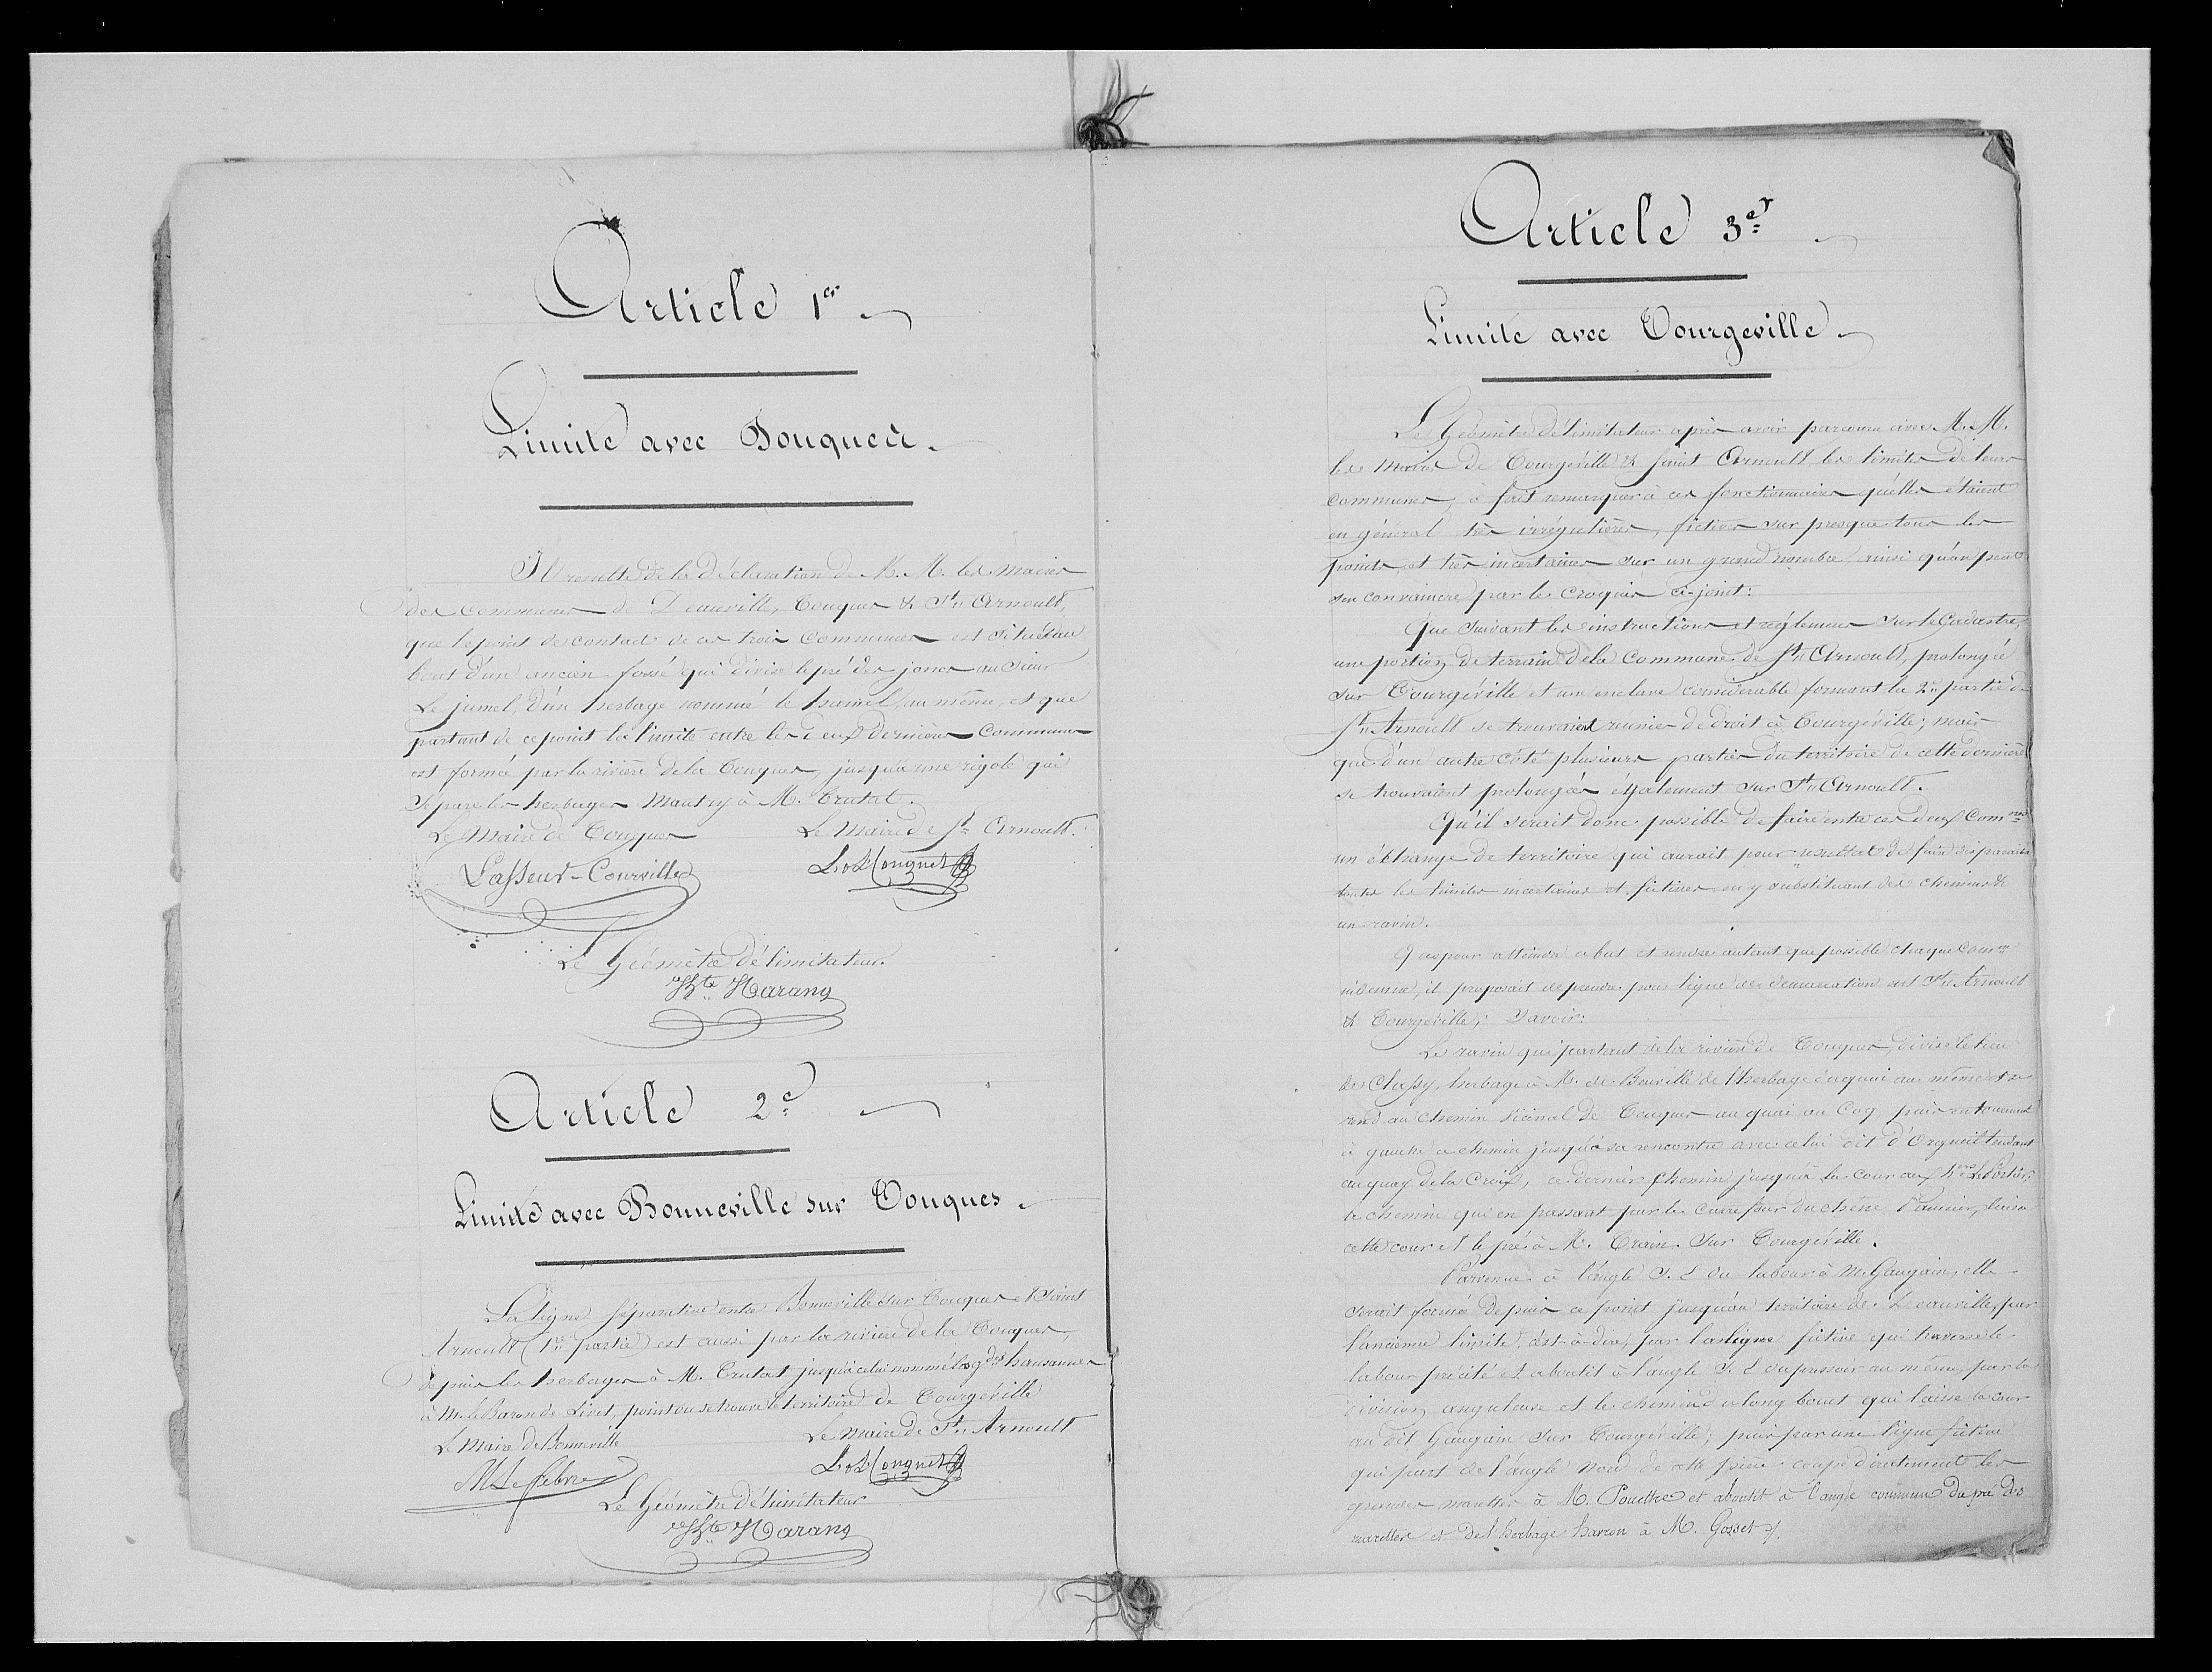 Article 1er
Limite avec Touques.
Il résulte de la déclaration de M. M. les maires
des communes de Deauville, Touques & St. Arnoult,
que le point de contact de ces trois communes est situé au
bout d'un ancien fossé qui divise le pré des joncs au sieur
Le jumel, d'un herbage nommé le hamel, au même, et que
partant de ce point la limite entre les deux dernières communes
est formée par la rivière de la Touques, jusqu'à une rigole qui
sépare les herbages Mautry à M. Trutat.
Le Maire de Touques
Le Maire de St. Arnoult.
Lasseur-Courville
Le Géomètre délimitateur.
Hte Harang
Article 2e
Limite avec Bonneville sur Touques.
La ligne séparative entre Bonneville sur Touques et Saint
Arnoult (1re partie) est aussi par la rivière de la Touques,
depuis les herbages à M. Trutat jusqu'à celui nommé les gdes
à M. le Baron de Livet, point où se trouve le territoire de Tourgéville
Le Maire de Bonneville
Le Maire de St. Arnoult
M Lefebvre
Le Géomètre délimitateur
Hte Harang
Article 3e
Limite avec Tourgeville
Le Géomètre délimitateur après avoir parcouru avec M. M.
les Maires de Tourgéville & Saint Arnoult les limites de leurs
communes, a fait remarquer à ces fonctionnaires qu'elles étaient
en général très irrégulières, fictives sur presque tous les
points et très incertaines sur un grand nombre ainsi qu'on peut
s'en convaincre par le croquis ci-joint:
Que suivant les instructions et réglemens sur le Cadastre,
une portion de terrain de la commune de St. Arnoult, prolongée
sur Tourgéville et une enclave considérable formant la 2e partie de
St. Arnoult se trouvaient réunies de droit à Tourgéville; mais
que d'un autre côté plusieurs parties du territoire de cette dernière
se trouvaient prolongées également sur St. Arnoult.
Qu'il serait donc possible de faire entre ces deux Comnes
un échange de territoire qui aurait pour résultat de faire disparaître
toutes les limites incertaines et fictives en y substituant des chemins &
un ravin.
Que pour atteindre ce but et rendre autant que possible chaque Comne
indemne, il proposait de prendre pour ligne de démarcation entre St. Arnoult
& Tourgéville; Savoir:
Le ravin qui partant de la rivière de Touques, divise le lieu
de Classy, herbage à M. de Beuville de l'herbage au même et se
rend au chemin vicinal de Touques au quai au Coq, puis en tournant
à gauche ce chemin jusqu'à sa rencontre avec celui dit d'Orgueil tendant
au quay de la Croix, ce dernier chemin jusqu'à la cour aux
le chemin qui en passant par le carrefour du chêne laisse
cette cour et le pré à M. sur Tourgéville.
Parvenue à l'angle S. E du labour à M. Gaugain, elle
serait formée depuis ce point jusqu'au territoire de Deauville, par
l'ancienne limite, c'est-à-dire, par la ligne fictive qui traverse le
labour précité et aboutit à l'angle S. E du pressoir au même, par la
division anguleuse et le chemin du long bouet qui laisse la cour
au dit Gaugain sur Tourgéville; puis par une ligne fictive
qui part de l'angle nord de cette pièce coupe directement les
grandes à M. et aboutit à l'angle commun du pré des
et de l'herbage à M. Gosset.